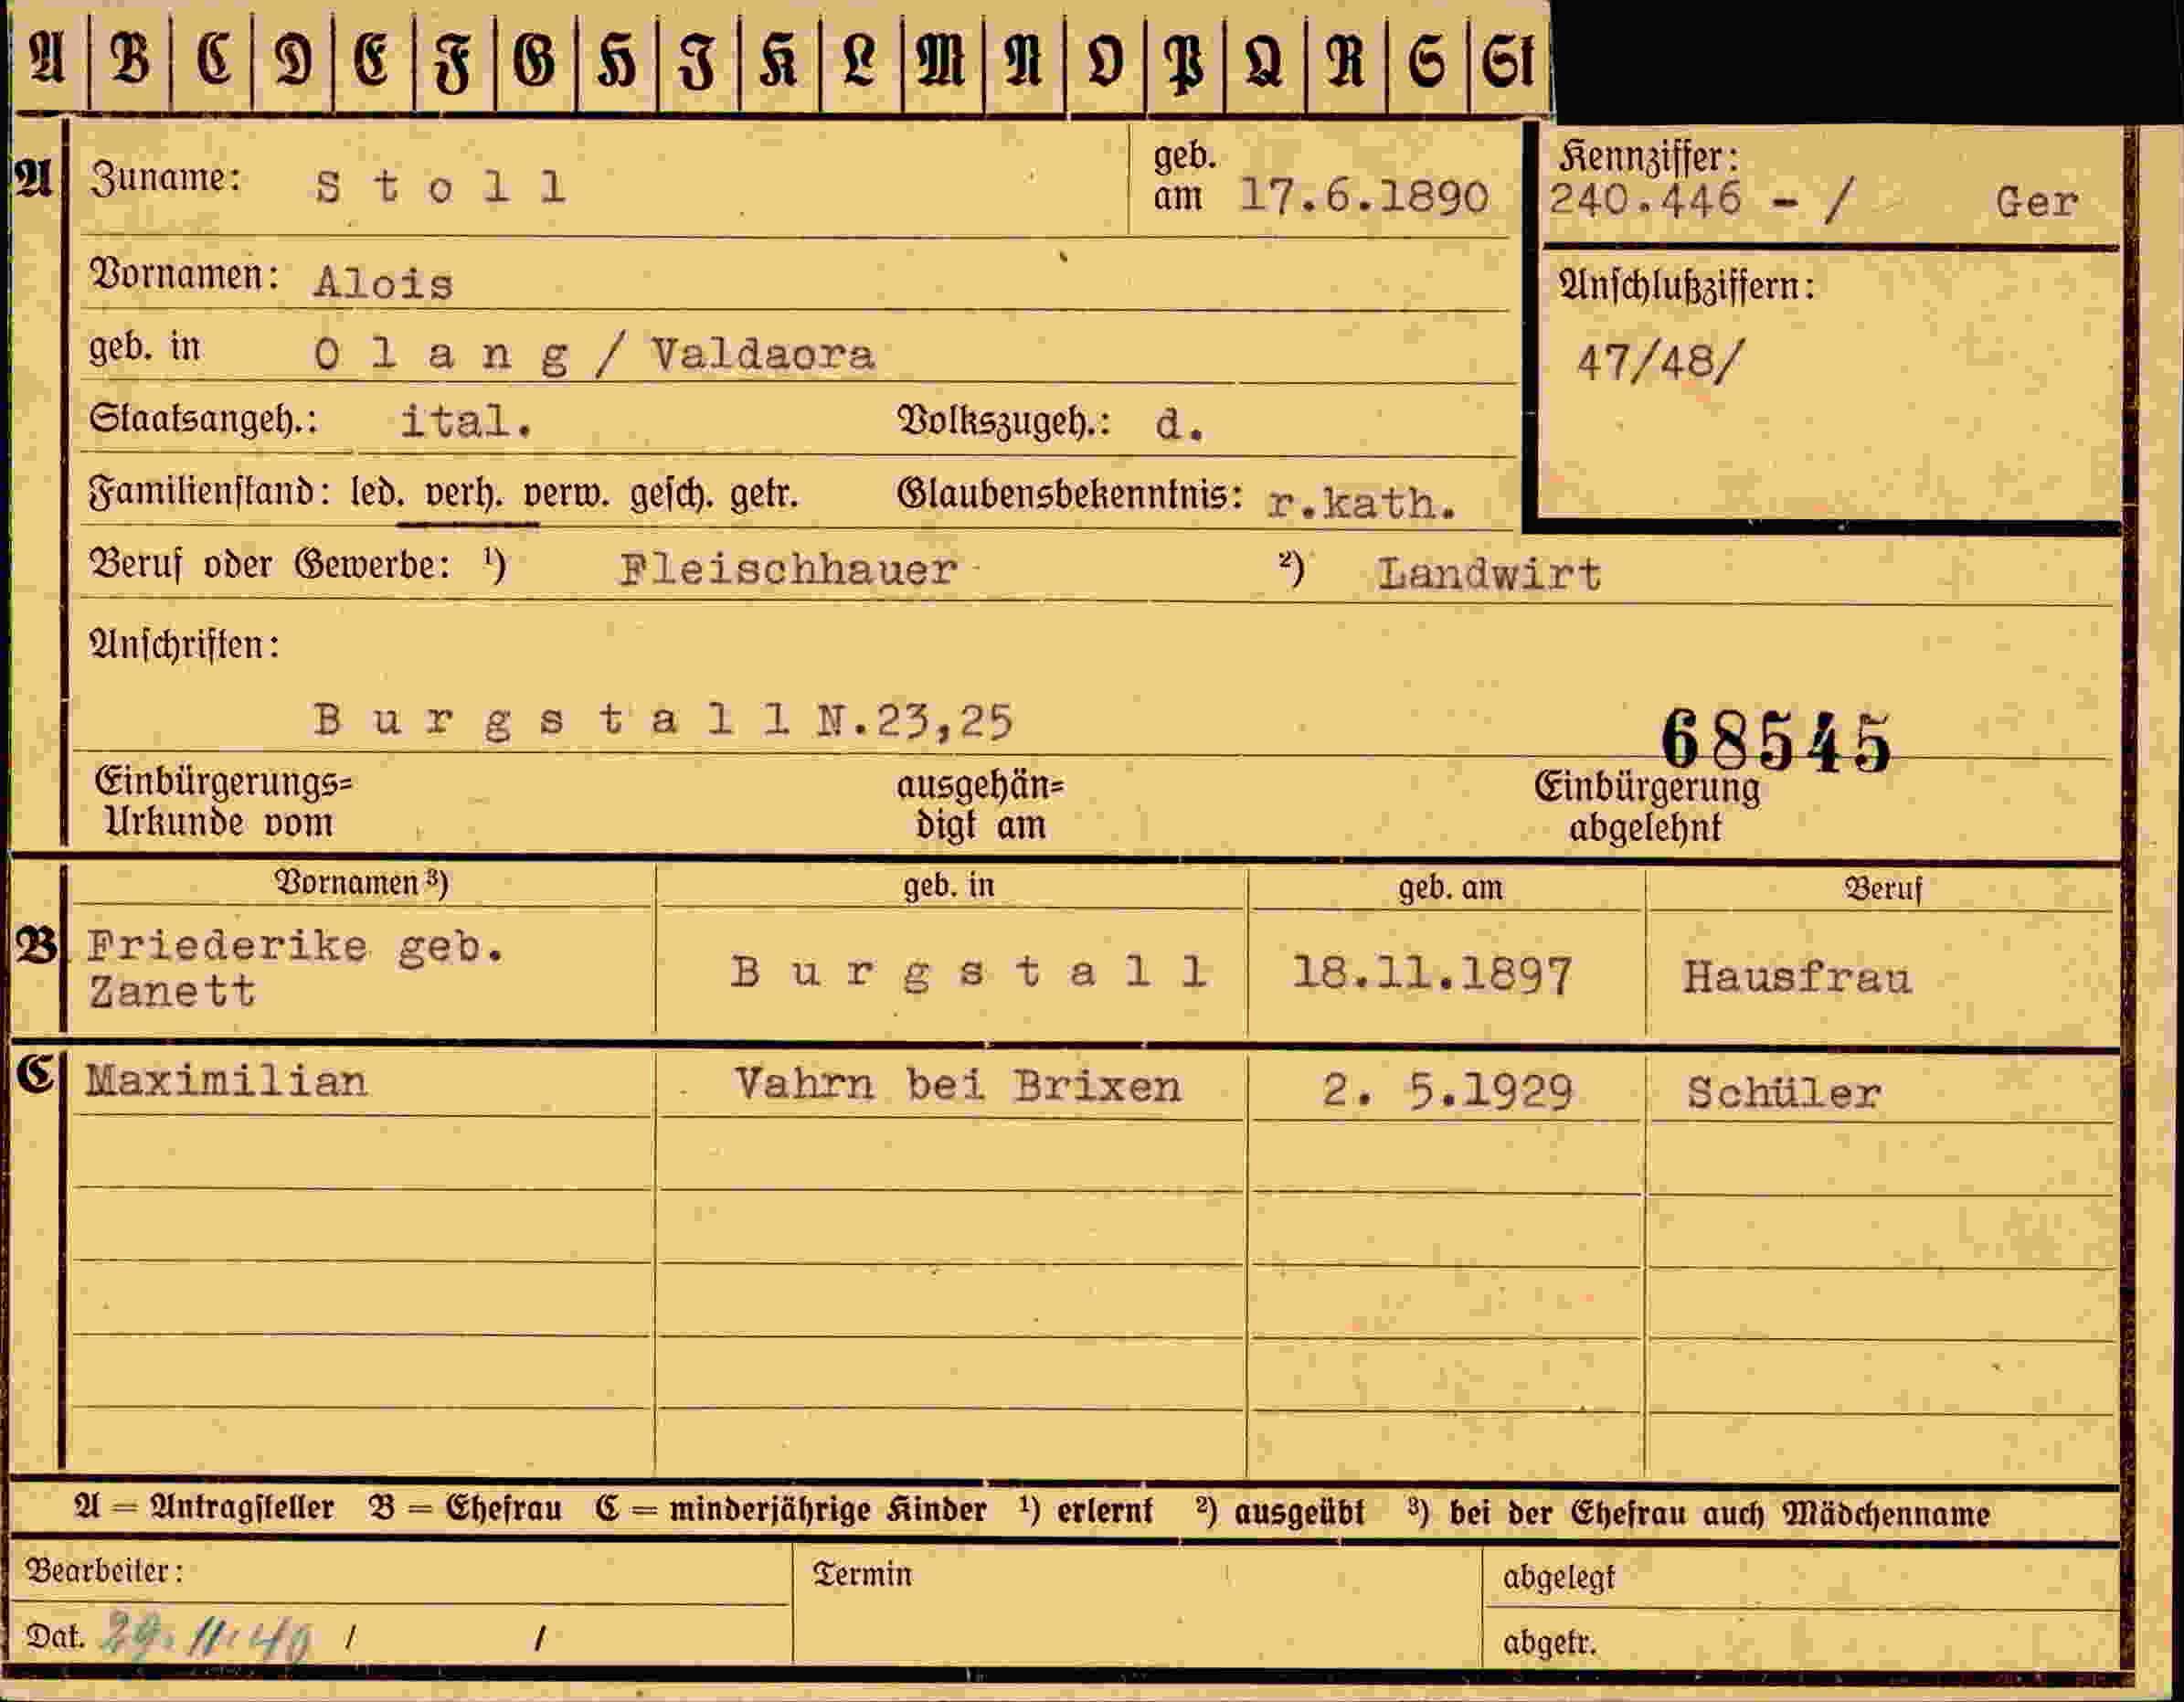 A B C D E F G H I K L M N O P Q R S St
A Zuname: Stoll geb. am 17.6.1890 Kennziffer: 240.446 - / Ger
Vornamen: Alois Anschlußziffern:
geb. in Olang/Valdaora 47/48/
Staatsangeh.: ital. Volkszugeh.: d.
Familienstand: led. verh. verw. gesch. getr. Glaubensbekenntnis: r.kath.
Beruf oder Gewerbe: ¹) Fleischhauer ²) Landwirt
Anschriften:
Burgstall N.23,25 68545
Einbürgerungs=
Urkunde vom
ausgehän=
digt am
Einbürgerung
abgelehnt
Vornamen ³) geb. in geb. am Beruf
B Friederike geb.
Zanett
Burgstall 18.11.1897 Hausfrau
C Maximilian Vahrn bei Brixen 2. 5.1929 Schüler
A = Antragsteller B = Ehefrau C = minderjährige Kinder ¹) erlernt ²) ausgeübt ³) bei der Ehefrau auch Mädchenname
Bearbeiter: Termin abgelegt
Dat. 29.11.40 / / abgetr.